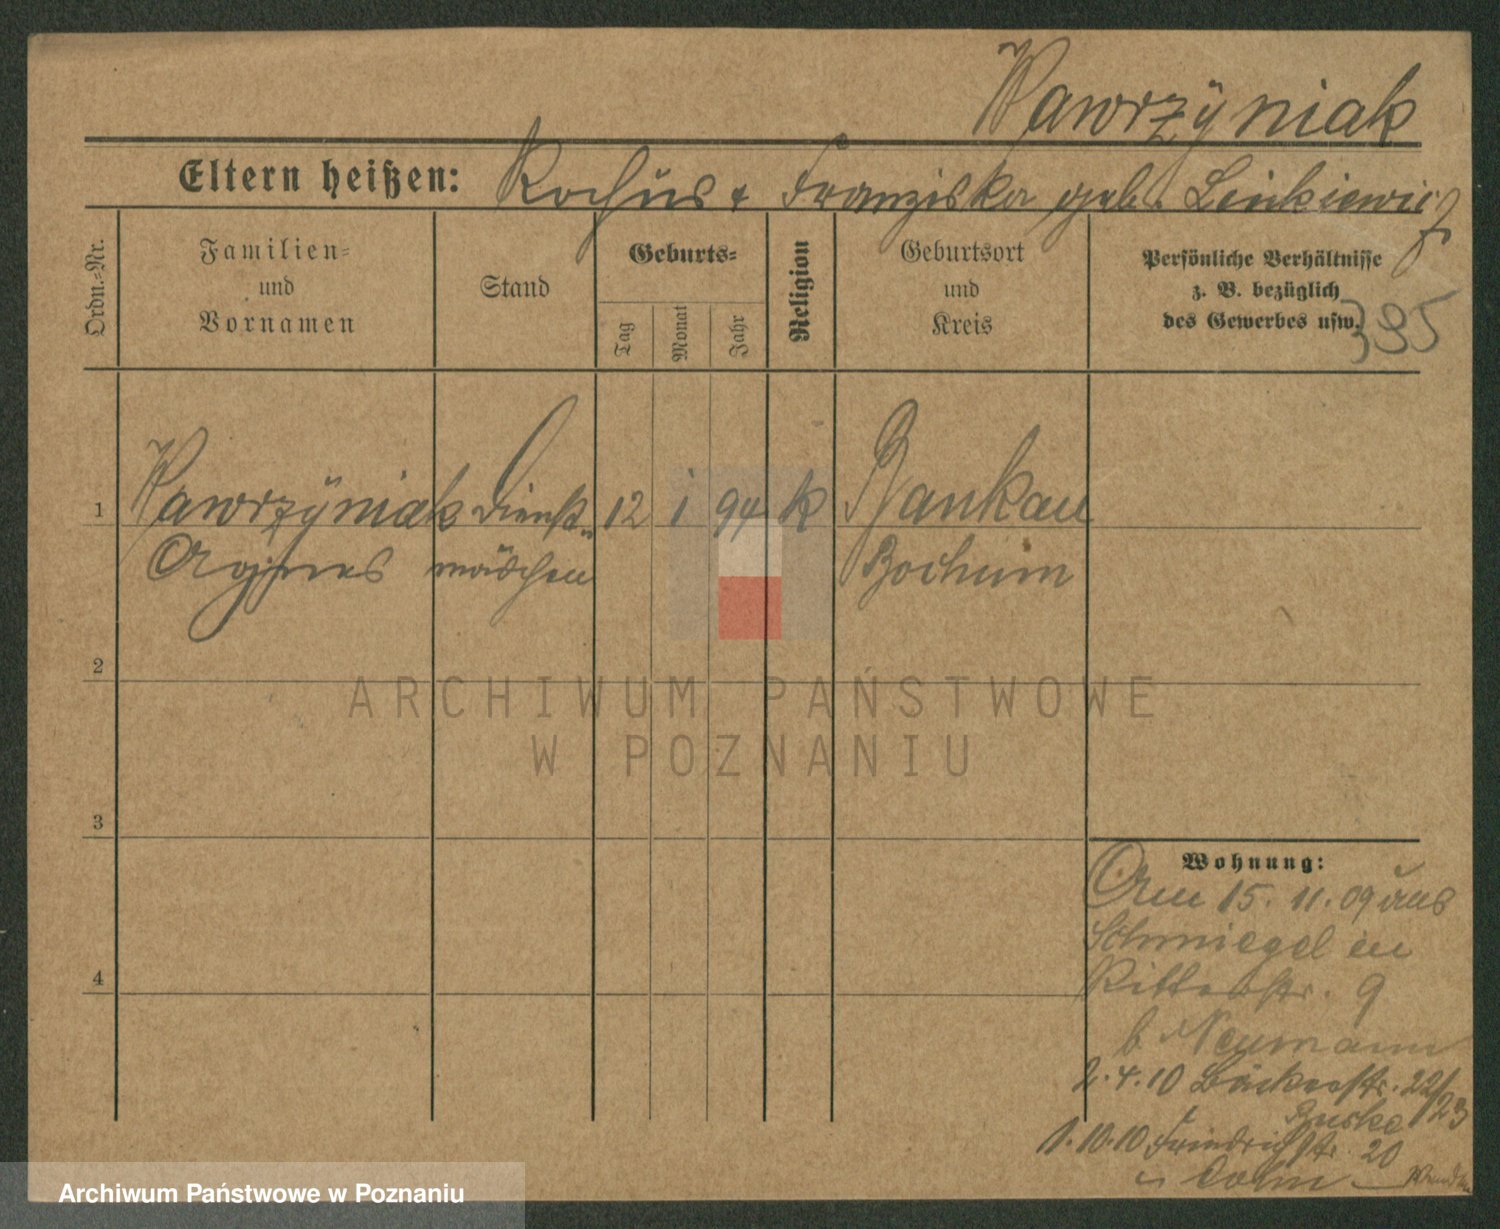 Wawrzyniak
Eltern heißen: Rochus & Franziska geb. Linkiewicz
Ordn.-Nr.
Familien-
und
Vornamen
Stand
Geburts-
Tag
Monat
Jahr
Religion
Geburtsort
und
Kreis
Persönliche Verhältnisse
z. B. bezüglich
des Gewerbes usw.
395
1 Wawrzyniak Dienst- 12 1 94 k Baukau
Agnes mädchen Bochum
2
ARCHIWUM PAŃSTWOWE
W POZNANIU
3
Wohnung:
Am 15. 11. 09 aus
Schmiegel in
Ritterstr. 9
b Neumann
2.4.10 Bäckerstr. 22/23
1.10.10 Friedrichstr. 20
Archiwum Państwowe w Poznaniu
4